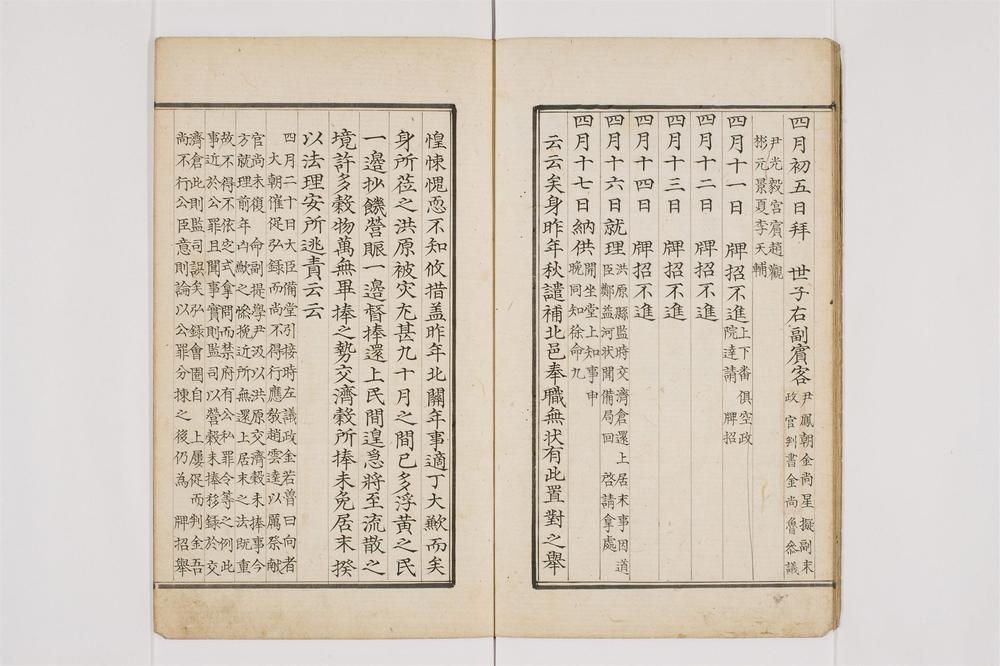 四月初五日拜　世子右副賓客尹鳳朝金尚星擬副末
政官判書金尚魯參議
尹光毅宮賓趙觀
彬元景夏李天輔
四月十一日　牌招不進上下番俱空政
院達請　牌招
四月十二日　牌招不進
四月十三日　牌招不進
四月十四日　牌招不進
四月十六日就理洪原縣監時交濟倉還上居末事因道
臣鄭益河狀聞備局回　啓請拿處
四月十七日納供開坐堂上知事申
晚同知徐命九
云云矣身昨年秋譴補北邑奉職無狀有此置對之舉
惶悚愧恧不知攸措盖昨年北關年事適丁大歉而矣
身所莅之洪原被灾尤甚九十月之間已多浮黃之民
一邊抄饑營賑一邊督捧還上民間遑急將至流散之
境許多穀物萬無畢捧之勢交濟穀所捧未免居末揆
以法理安所逃責云云
四月二十日大臣備堂引接時左議政金若魯曰向者
大朝催促弘錄而尚不得行應敎趙雲逵以厲祭獻
官尚未復　命副提學尹汲以洪原交濟穀未捧事今
方就理前年凶歉之餘挽近所無還上居末之法旣重
故不得不依定式拿問而禁府有公私罪令等之例此
事近於公罪且聞事實則監司以營穀未捧移錄於交
濟倉此則監司誤矣弘錄會圈自　上屢促而判金吾
尚不行公臣意則論以公罪分揀之後仍爲　牌招舉